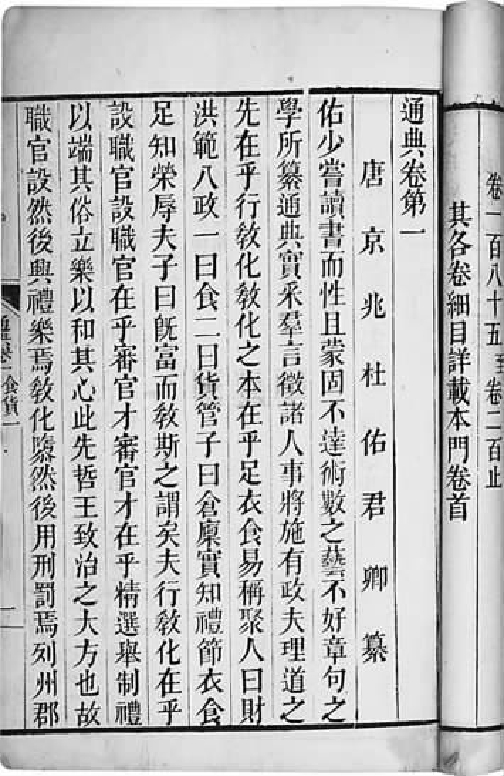 卷一百八十五至卷二百止
其各卷細目詳載本門卷首
通典卷第一
唐京兆杜佑君卿纂
佑少嘗讀書而性且蒙固不達術數之藝不好章句之
學所纂通典實采羣言徵諸人事將施有政夫理道之
先在乎行敎化敎化之本在乎足衣食易稱聚人曰財
洪範八政一曰食二曰貨管子曰倉廩實知禮節衣食
足知榮辱夫子曰旣富而敎斯之謂矣夫行敎化在乎
設職官設職官在乎審官才審官才在乎精選舉制禮
以端其俗立樂以和其心此先哲王致治之大方也故
職官設然後興禮樂焉敎化隳然後用刑罰焉列州郡
通典卷一 食貨一